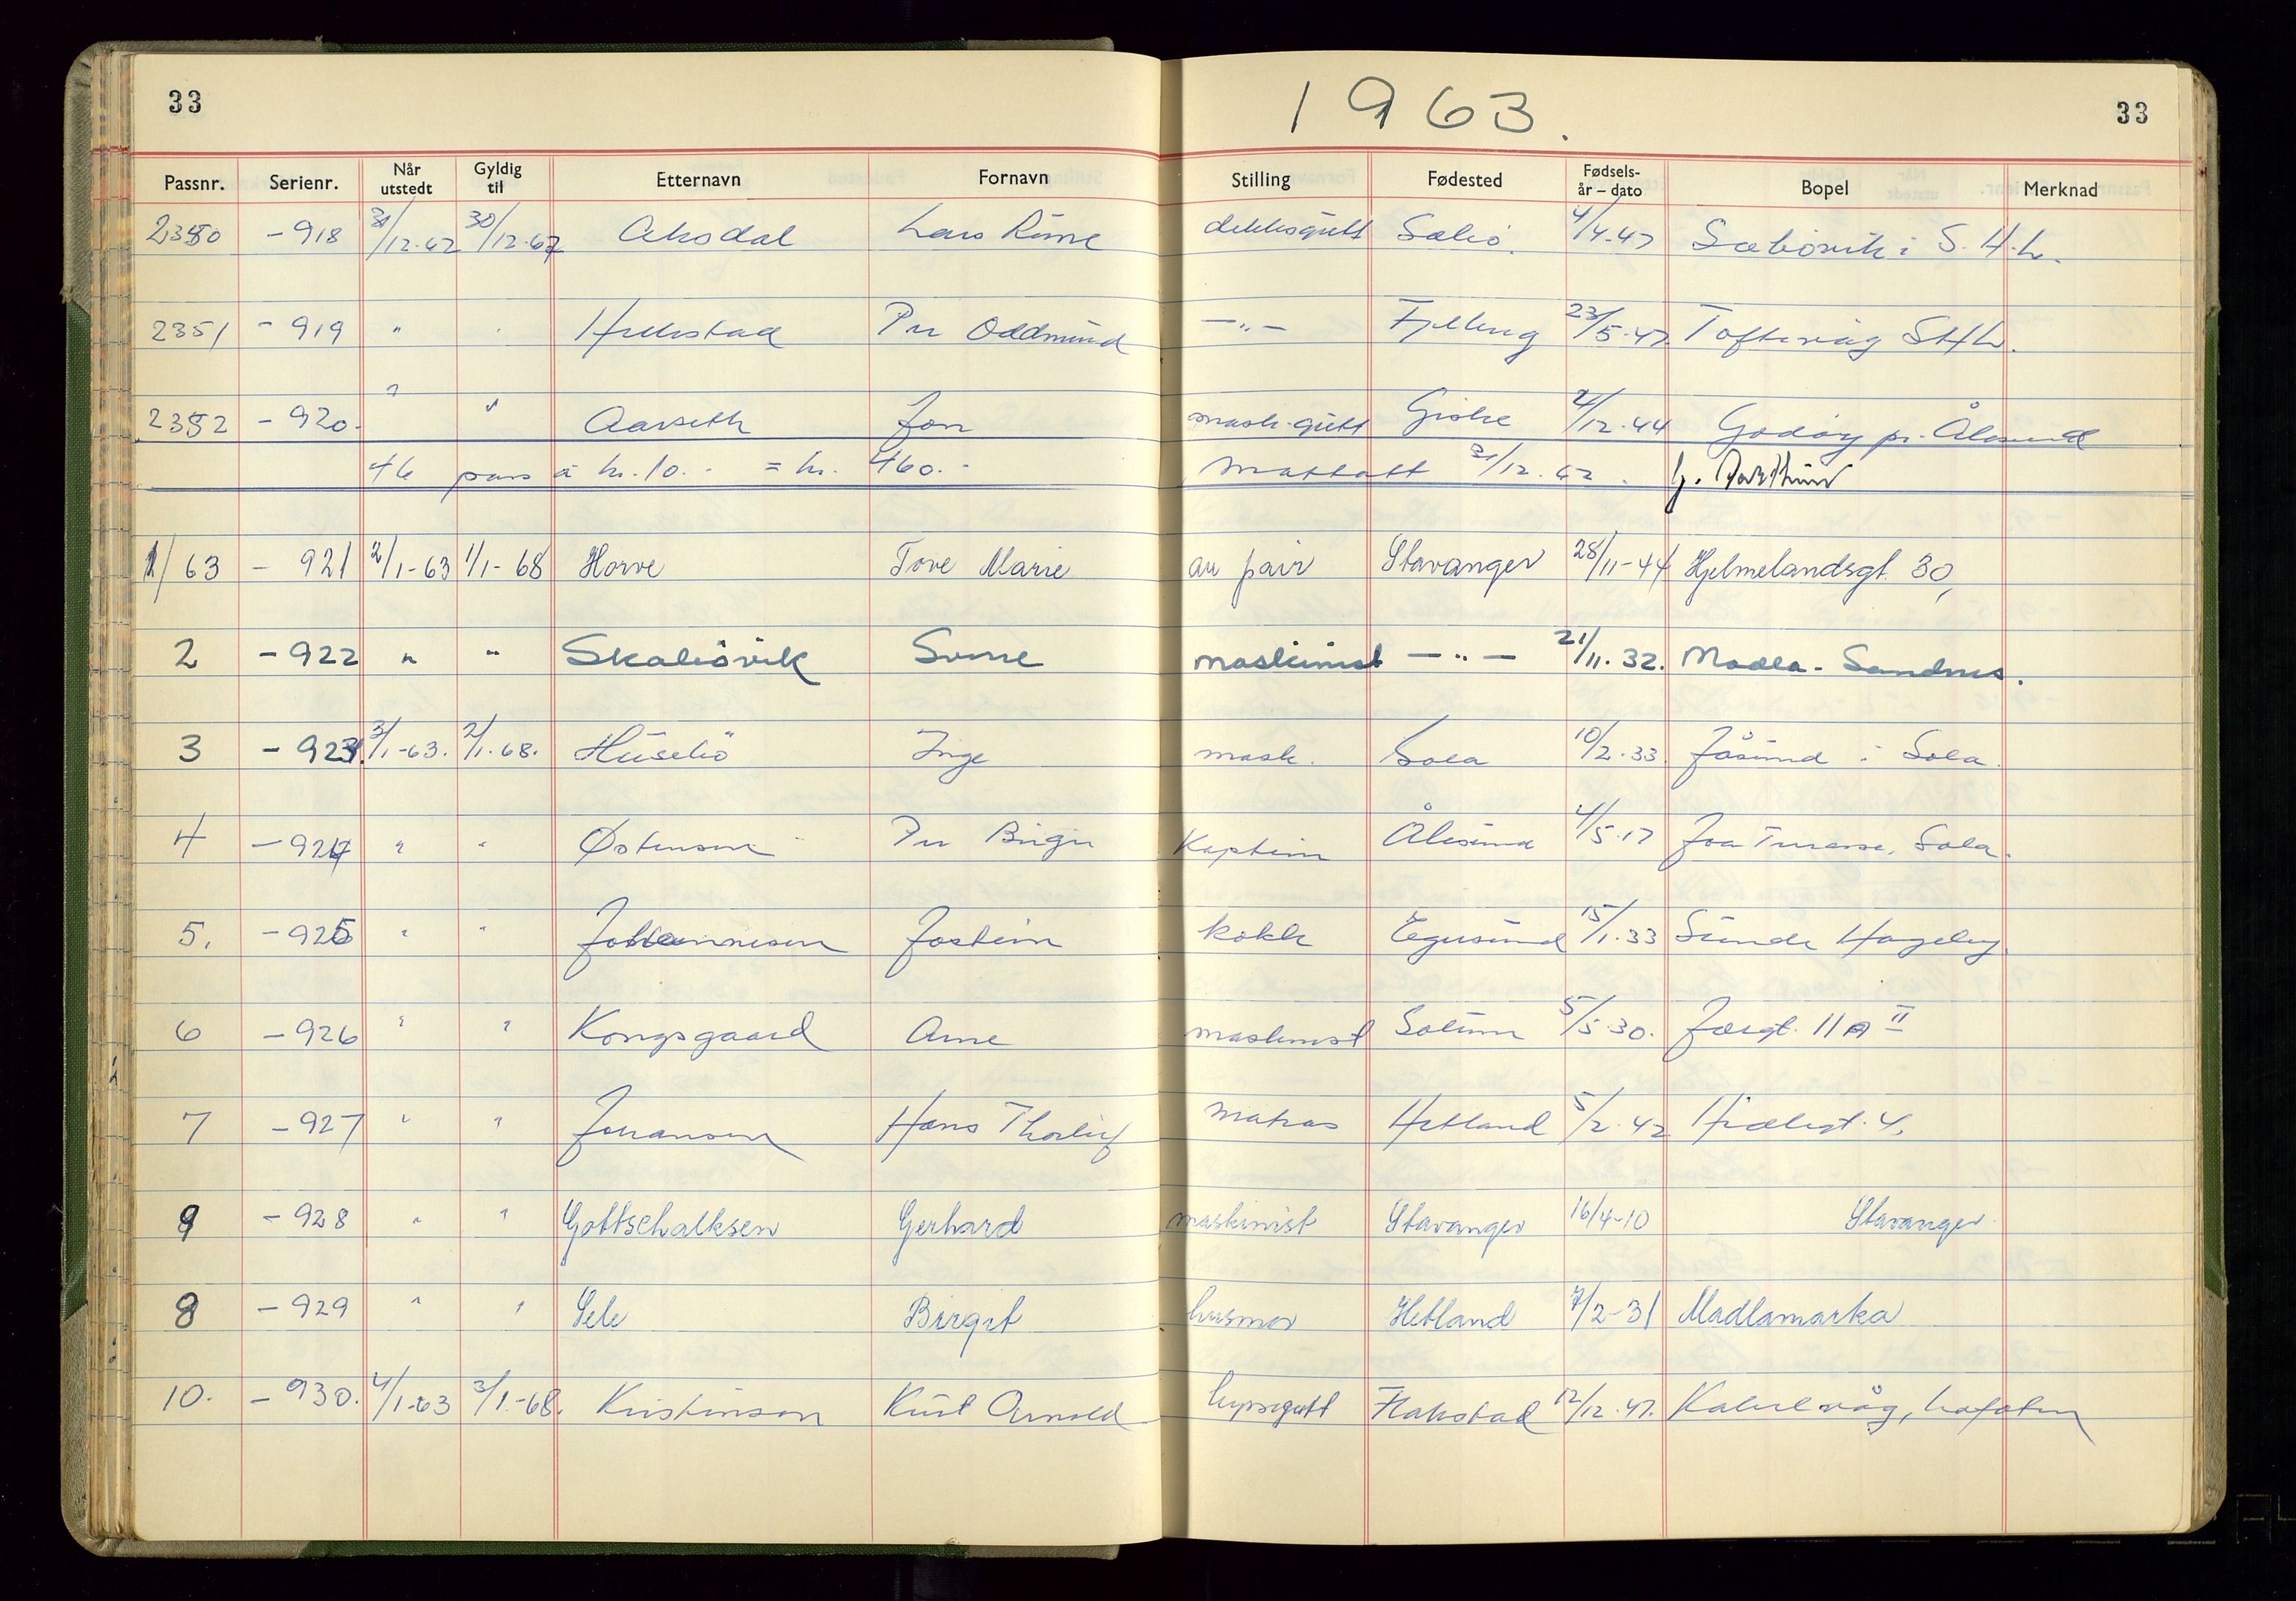 33
1963.
33
Passnr. Serienr. Når utstedt Gyldig til Etternavn Fornavn Stilling Fødested Fødsels-år – dato Bopel Merknad
2350 -918 31/12-62 30/12-67 Aksdal Lars Rune dekksgutt Sæbø. 4/4-47 Sæbøvik i S.H.L.
2351 -919 " " Hellestad Per Oddmund -"- Fjelberg 23/5-47. Toftevåg SHL.
2352 -920. " " Aarseth Jon mask.gutt Giske 4/12-44 Godøy pr. Ålesund
46 pass á kr. 10.- = kr. 460.- Mottatt 31/12.62.
1/63 - 921 2/1-63 1/1-68 Horve Tove Marie au pair Stavanger 28/11-44 Hjelmelandsgt. 30,
2 -922 " " Skabøvik Sverre maskinist -"- 21/11.32. Madla-Sandnes.
3 -923. 3/1-63. 2/1.68. Husebø Inge mask. Sola 10/2.33. Jåsund i Sola.
4 -924 " " Østensen Per Birger Kaptein Ålesund 4/5.17 Joa Sola.
5. -925 " " Johannesen Jostein kokk Egersund 15/1.33 Sunde Hageby.
6 -926 " " Kongsgaard Arne maskinist Solum 5/5.30. Jærgt. 11 A II
7 -927 " " Johansen Hans Thorleif matros Hetland 5/2.42 4.
9 -928 " " Gottschalksen Gerhard maskinist Stavanger 16/4-10 Stavanger
8 -929 " " Sele Birgit husmor Hetland 7/2-31 Madlamarka
10. -930. 4/1-63 3/1-68. Kristinson Kurt Arnold byssegutt Flakstad 12/12.47. Kabelvåg, Lofoten